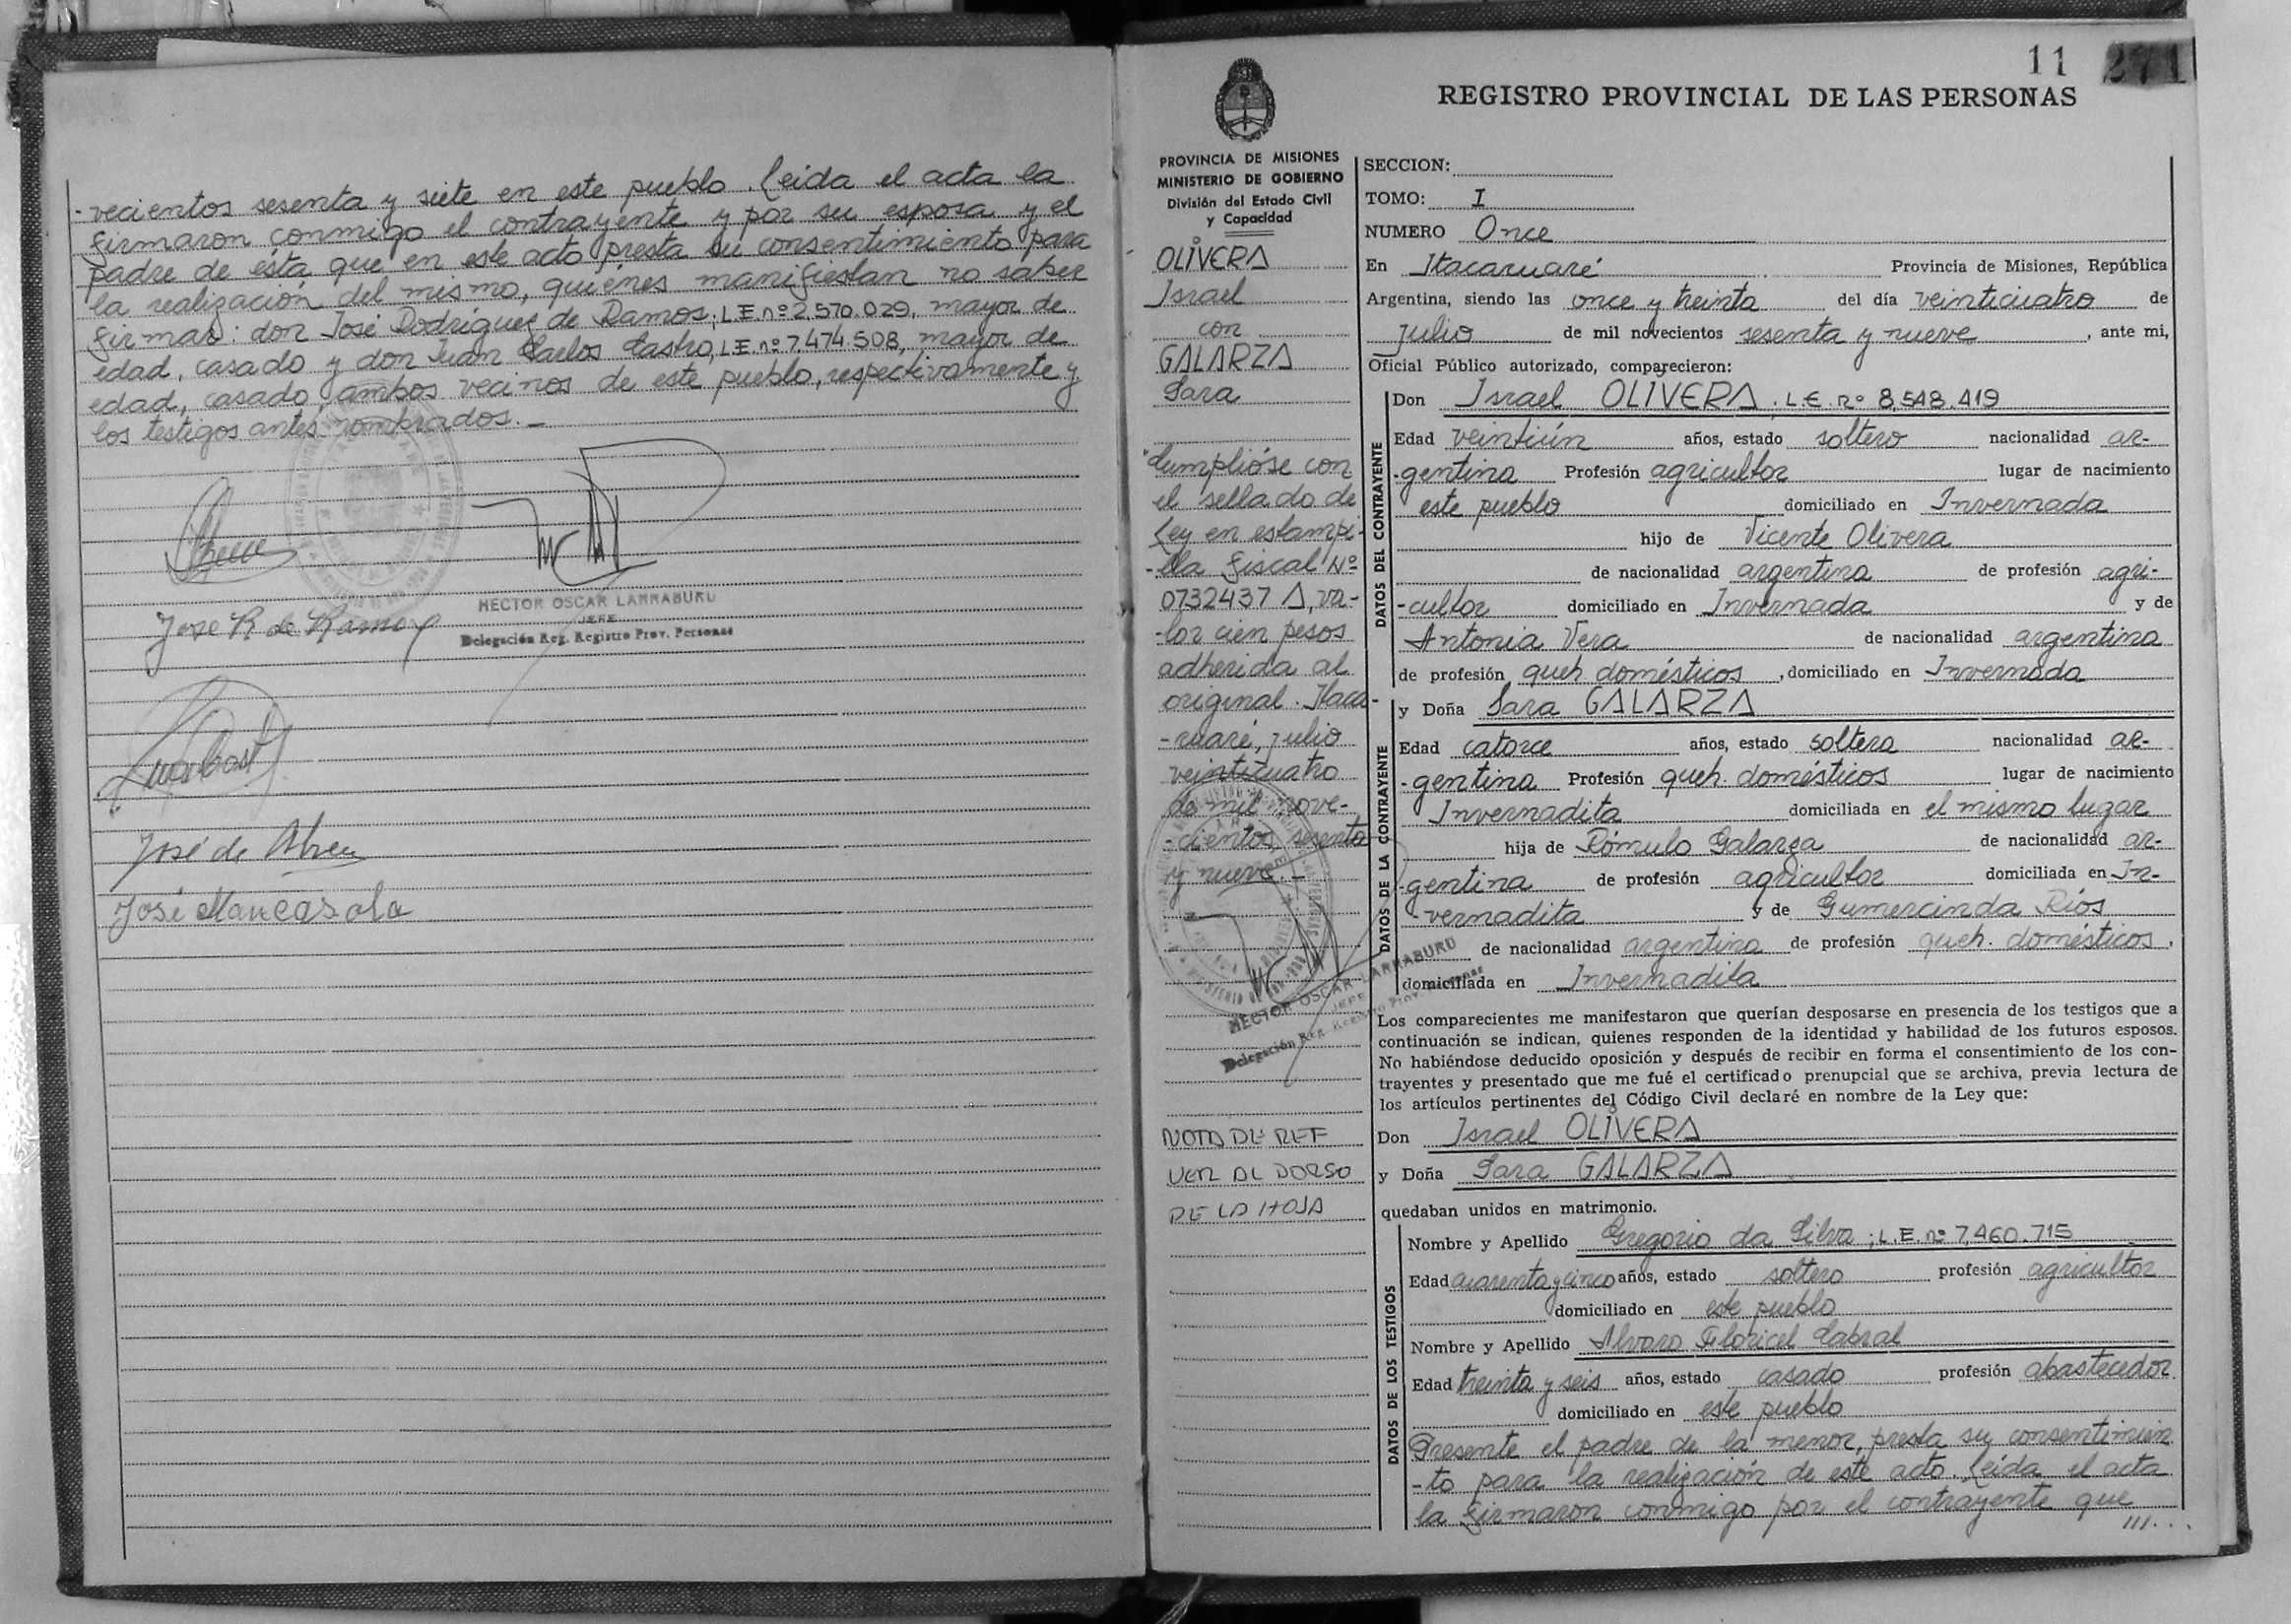 -vecientos sesenta y siete en este pueblo. Leida el acta la
firmaron conmigo el contrayente y por su esposa y el
padre de ésta que en este acto presta su consentimiento para
la realización del mismo, quiénes manifiestan no saber
firmar: don José Rodríguez de Ramos, L.E. nº 2.570.029, mayor de
edad, casado y don Juan Carlos Castro, L.E. nº 7.474.508, mayor de
edad, casado, ambos vecinos de este pueblo, respectivamente y
los testigos antes nombrados.-
HECTOR OSCAR LARRABURU
JEFE
Delegación Reg. Registro Prov. Personas
José R de Ramos
José de Abreu
José Mancasola
11 271
REGISTRO PROVINCIAL DE LAS PERSONAS
PROVINCIA DE MISIONES
MINISTERIO DE GOBIERNO
División del Estado Civil
y Capacidad
OLIVERA
Israel
con
GALARZA
Sara
Cumplióse con
el sellado de
Ley en estampi-
-lla fiscal Nº
0732437 A, va-
-lor cien pesos
adherida al
original. Itaca-
-ruaré, julio
veinticuatro
de mil nove-
-cientos sesenta
y nueve.-
HECTOR OSCAR LARRABURU
JEFE
Delegación Reg. Registro Prov. Personas
NOTA DE REF
VER AL DORSO
DE LA HOJA
SECCION:
TOMO: I
NUMERO Once
En Itacaruaré Provincia de Misiones, República
Argentina, siendo las once y treinta del día veinticuatro de
julio de mil novecientos sesenta y nueve, ante mi,
Oficial Público autorizado, comparecieron:
DATOS DEL CONTRAYENTE
Don Israel OLIVERA, L.E. nº 8.548.419
Edad veintiún años, estado soltero nacionalidad ar-
-gentina Profesión agricultor lugar de nacimiento
este pueblo domiciliado en Invernada
hijo de Vicente Olivera
de nacionalidad argentina de profesión agri-
-cultor domiciliado en Invernada y de
Antonia Vera de nacionalidad argentina
de profesión queh. domésticos, domiciliado en Invernada
DATOS DE LA CONTRAYENTE
y Doña Sara GALARZA
Edad catorce años, estado soltera nacionalidad ar-
-gentina Profesión queh. domésticos lugar de nacimiento
Invernadita domiciliada en el mismo lugar
hija de Rómulo Galarza de nacionalidad ar-
-gentina de profesión agricultor domiciliada en In-
-vernadita y de Gumercinda Ríos
de nacionalidad argentina de profesión queh. domésticos,
domiciliada en Invernadita
Los comparecientes me manifestaron que querían desposarse en presencia de los testigos que a
continuación se indican, quienes responden de la identidad y habilidad de los futuros esposos.
No habiéndose deducido oposición y después de recibir en forma el consentimiento de los con-
trayentes y presentado que me fué el certificado prenupcial que se archiva, previa lectura de
los artículos pertinentes del Código Civil declaré en nombre de la Ley que:
Don Israel OLIVERA
y Doña Sara GALARZA
quedaban unidos en matrimonio.
DATOS DE LOS TESTIGOS
Nombre y Apellido Gregorio da Silva; L.E. nº 7.460.715
Edad cuarenta y cinco años, estado soltero profesión agricultor
domiciliado en este pueblo
Nombre y Apellido Alvaro Floricel Cabral
Edad treinta y seis años, estado casado profesión abastecedor
domiciliado en este pueblo
Presente el padre de la menor, presta su consentimien
-to para la realización de este acto. Leída el acta
la firmaron conmigo por el contrayente que
///...